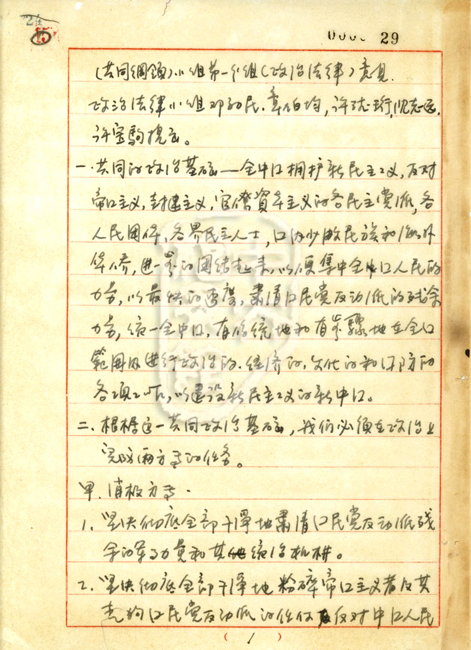 29
(共同綱領)小组第一个组(政治法律)意見
政治法律小组 邓初民、章伯均,许德珩,沈志远,
许宝驹提出。
一.共同的政治基础——全中囗拥护新民主主义,反对
帝囗主义,封建主义,官僚資本主义的各民主党派,各
人民團体,各界民主人士,囗内少数民族和海外
华侨,進一步的團结起来,以便集中全中囗人民的
力量,以最快的速度,肃清囗民党反动派的残余
力量,统一全中囗,有系统地和有步骤地在全囗
範围内進行政治的、经济的、文化的和囗防的
各项工作,以建設新民主主义的新中囗。
二.根据这一共同政治基础,我们必须在政治上
完成两方面的任务。
甲.消极方面.
1.坚决彻底全部干净地肃清囗民党反动派残
余的军事力量和其他统治机构。
2.坚决彻底全部干净地粉碎帝囗主义者及其
走狗囗民党反动派的任何反对中囗人民
(1)